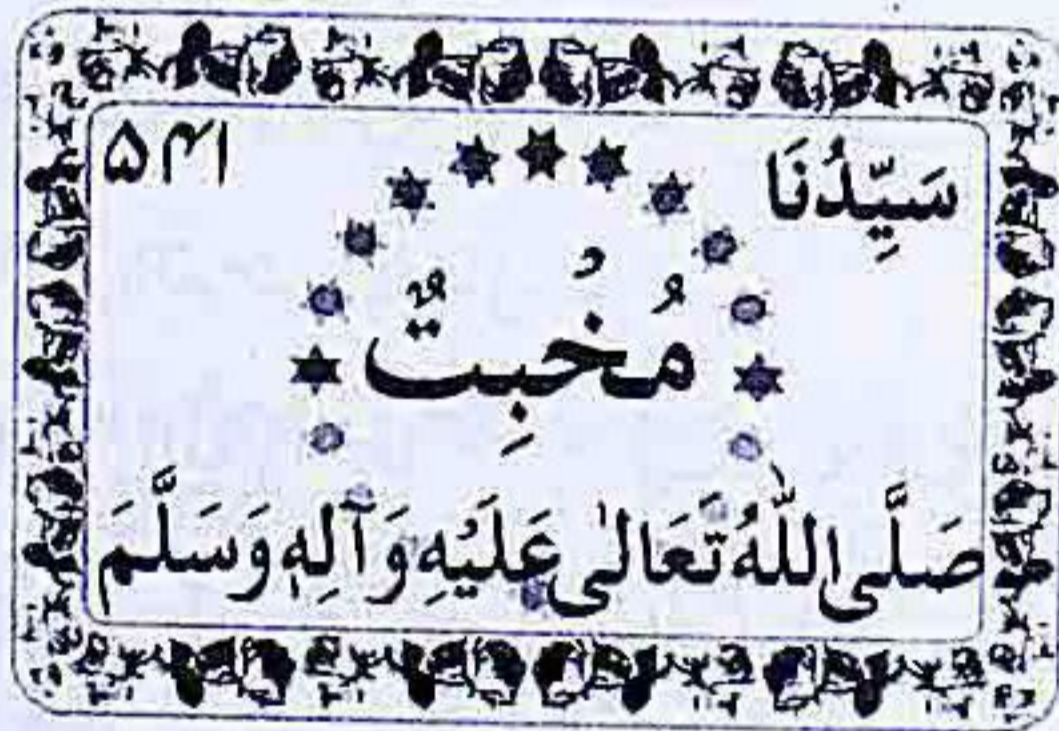 سَيِّدُنَا ۵۴۱
مُخْبِتٌ
صَلَّى اللّٰهُ تَعَالٰى عَلَيْهِ وَآلِهٖ وَسَلَّمَ